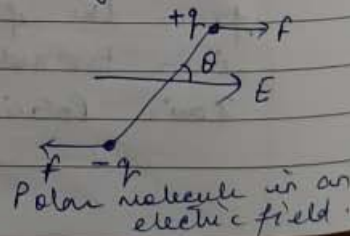 +q F
θ
E
F -q
Polar molecule in an
electric field.